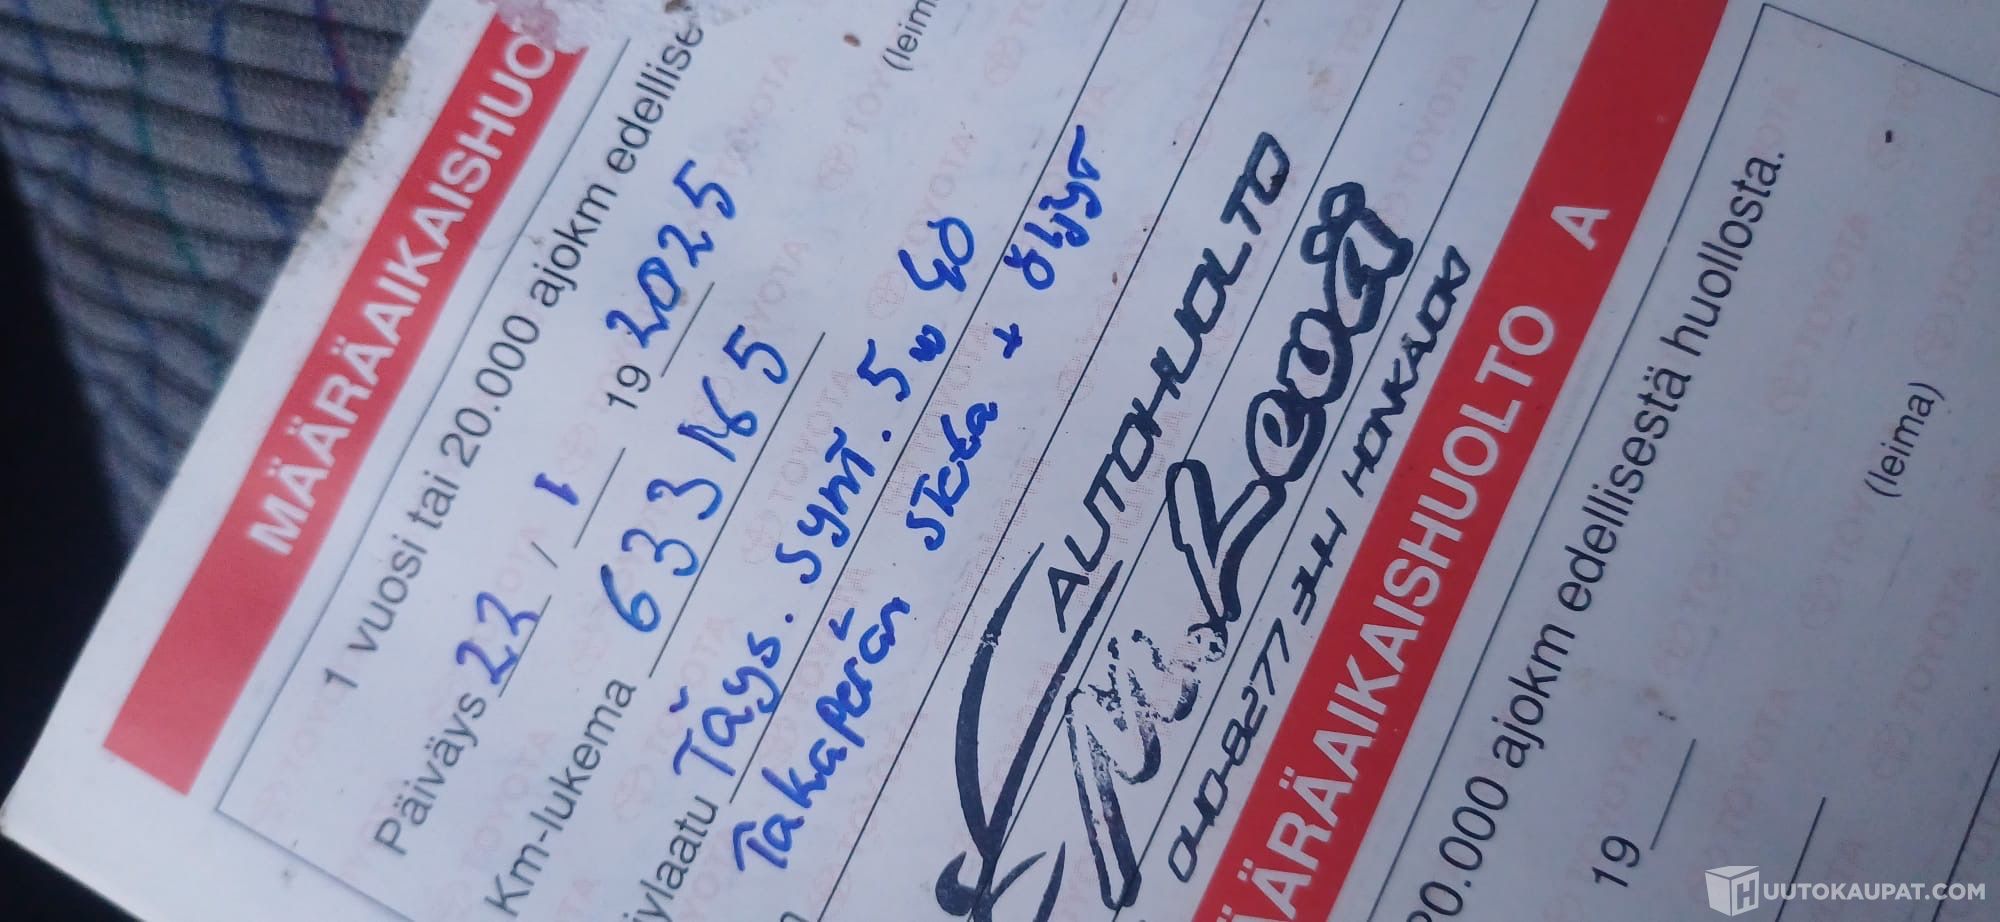 MÄÄRÄAIKAISHUO
1 vuosi tai 20.000 ajokm edellise
(leim
Päiväys 23 / 1 19 2025
Km-lukema 633165
ylaatu Täys. synt. 5w40
Takaperän stefa + öljyt
AUTOHUOLTO
M.
HONKAJOKI
MÄÄRÄAIKAISHUOLTO A
20.000 ajokm edellisestä huollosta.
(leima)
19
HUUTOKAUPAT.COM